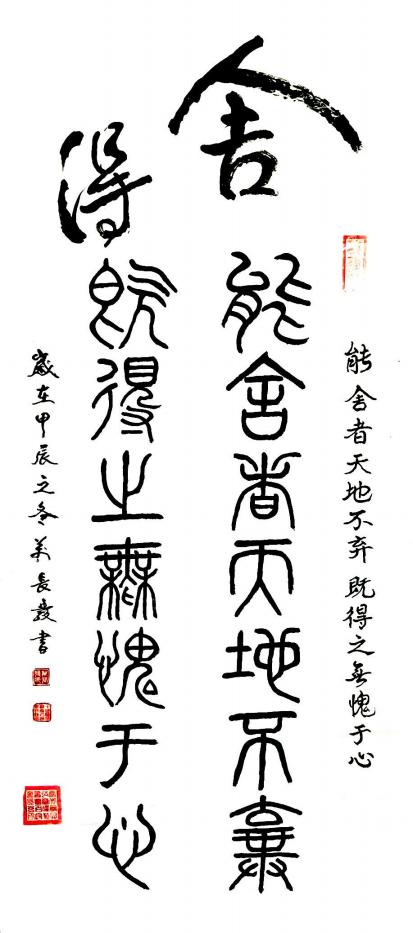 舍得
能舍者天地不棄
既得之無愧于心
能舍者天地不弃既得之無愧于心
歲在甲辰之冬
長發書